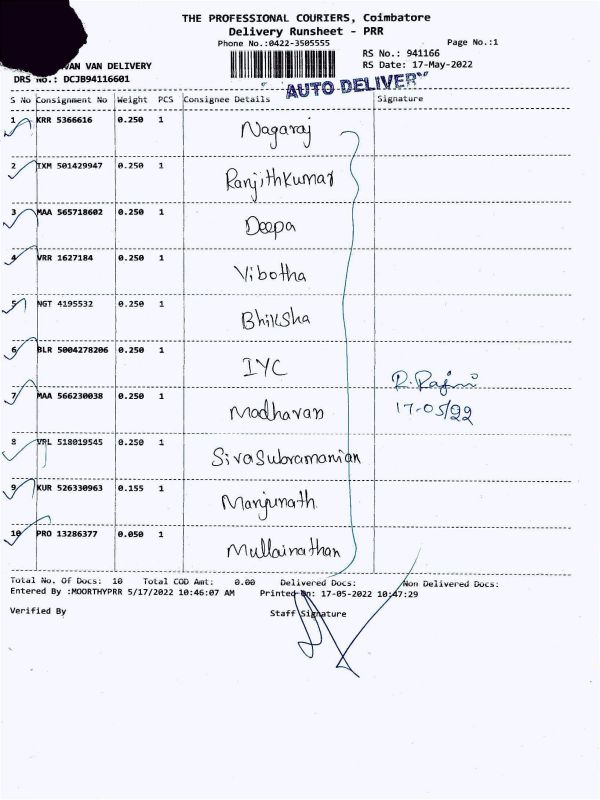 THE PROFESSIONAL COURIERS, Coimbatore
Delivery Runsheet - PRR
Phone No.:0422-3505555 Page No.:1
RS No.: 941166
VAN DELIVERY RS Date: 17-May-2022
DRS No.: DCJB94116601
AUTO DELIVERY
S No Consignment No Weight PCS Consignee Details Signature
1 KRR 5366616 0.250 1 Nagaraj
2 IXM 501429947 0.250 1 Ranjithkumar
3 MAA 565718602 0.250 1 Deepa
4 VRR 1627184 0.250 1 Vibotha
5 NGT 4195532 0.250 1 Bhiksha
6 BLR 5004278206 0.250 1 IYC
R. Rajni
7 MAA 566230038 0.250 1 Madhavan
17-05/22
8 VRL 518019545 0.250 1 Sivasubramanian
9 KUR 526330963 0.155 1 Manjunath
10 PRO 13286377 0.050 1 Mullainathan
Total No. Of Docs: 10 Total COD Amt: 0.00 Delivered Docs: Non Delivered Docs:
Entered By :MOORTHYPRR 5/17/2022 10:46:07 AM Printed On: 17-05-2022 10:47:29
Verified By Staff Signature